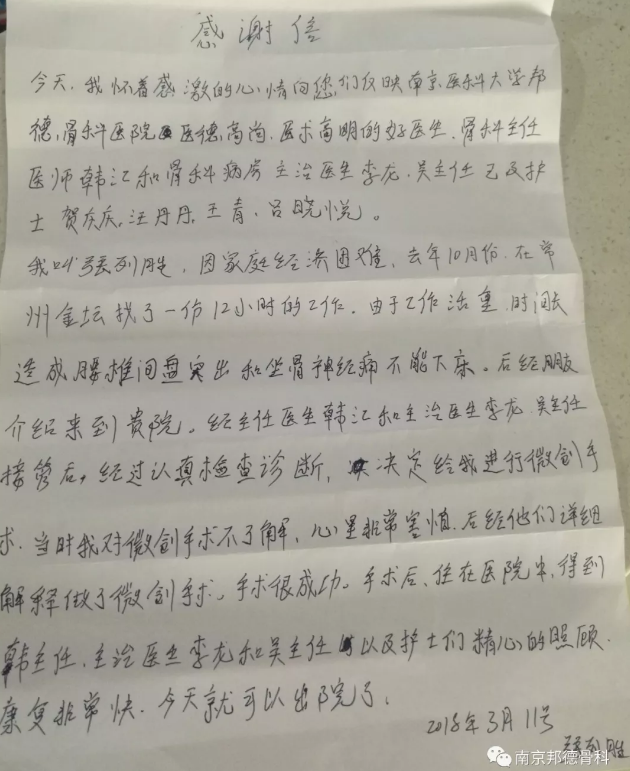 感谢信
今天,我怀着感激的心情向您们反映南京医科大学邦
德骨科医院医德高尚,医术高明的好医生,骨科主任
医师韩江和骨科病房主治医生李龙,吴主任已及护
士贺庆庆,汪丹丹,王青,吕晓悦。
我叫张列胜,因家庭经济困难,去年10月份,在常
州金坛找了一份12小时的工作。由于工作活重,时间长
造成腰椎间盘突出和坐骨神经痛不能下床。后经朋友
介绍来到贵院。经主任医生韩江和主治医生李龙,吴主任
接管后,经过认真检查诊断,决定给我进行微创手
术,当时我对微创手术不了解,心里非常害怕,后经他们详细
解释做了微创手术,手术很成功。手术后,住在医院中,得到
韩主任,主治医生李龙和吴主任以及护士们精心的照顾,
康复非常快,今天就可以出院了。
2018年3月11号
张列胜
南京邦德骨科